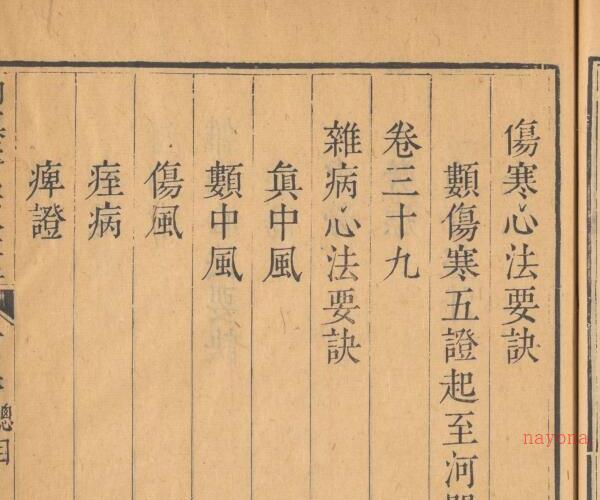 傷寒心法要訣
類傷寒五證起至河
卷三十九
雜病心法要訣
眞中風
類中風
傷風
痓病
痺證
總目
nayona